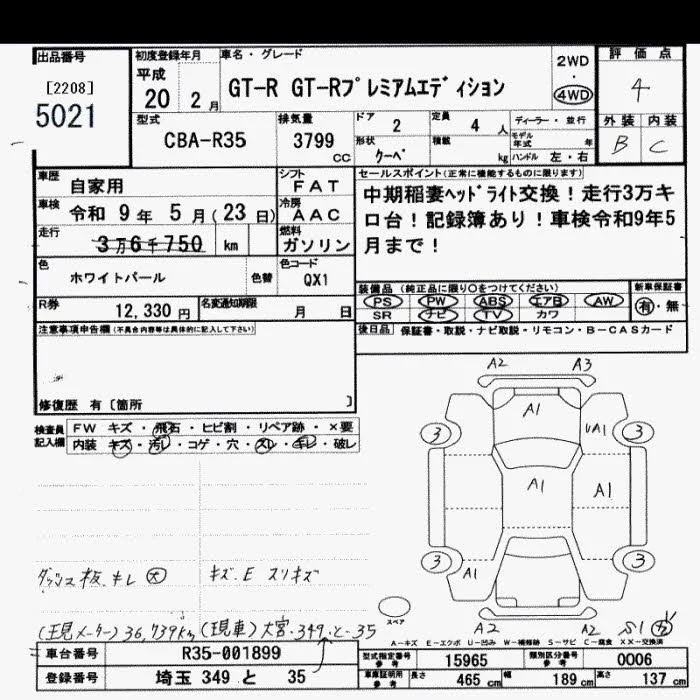 出品番号
[2208]
5021
初度登録年月
平成
20 2 月
車名・グレード
GT-R GT-Rプレミアムエディション
2WD
・
4WD
評価点
4
外装 内装
B C
型式
CBA-R35
排気量
3799
CC
ドア
2
定員
4 人
形状
クーペ
積載
kg
ディーラー・並行
モデル年式 年
ハンドル 左・右
車歴
自家用
シフト
FAT
車検
令和 9 年 5 月(23 日)
冷房
AAC
走行
3万6千750 km
燃料
ガソリン
色
ホワイトパール
色替
色コード
QX1
R券
12,330 円
名変通知期限
月 日
セールスポイント(正常に機能するものに限ります)
中期稲妻ヘッドライト交換!走行3万キ
ロ台!記録簿あり!車検令和9年5
月まで!
装備品 (純正品に限り○をつけてください)
PS PW ABS エアB AW
SR ナビ TV カワ
新車保証書
有・無
後日品 保証書・取説・ナビ取説・リモコン・B-CASカード
注意事項申告欄(不具合内容等は具体的に記入して下さい)
修復歴 有 [箇所 ]
検査員
記入欄
FW キズ・飛石・ヒビ割・リペア跡・×要
内装 キズ・汚レ・コゲ・穴・スレ・キレ・破レ
A2 A3
A1
3 UA1 3
A1 A1
3 3
A1
スペア
A2 A2 S1
ダッシュ板キレ 大
キズ.E スリキズ
(現メーター) 36,739km (現車) 大宮・349・と・35
A-キズ E-エクボ U-凹み W-補修跡 S-サビ C-腐食 XX-交換済
車台番号
R35-001899
登録番号
埼玉 349 と 35
型式指定番号
参考
15965
類別区分番号
参考
0006
車庫証明用
参考
長さ
465 cm
幅
189 cm
高さ
137 cm